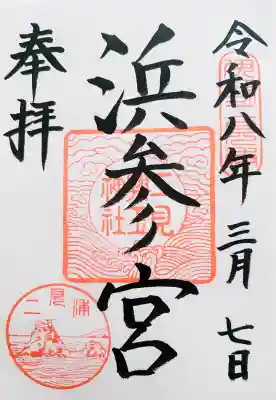 令和八年三月七日
浜参宮
奉拝
二見
神社
二見浦